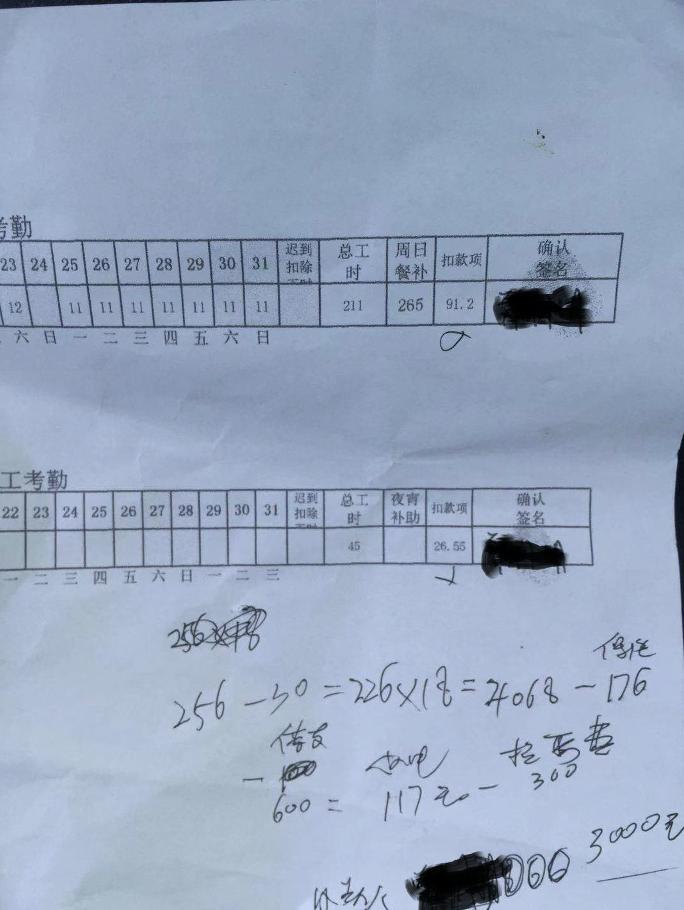 考勤
23 24 25 26 27 28 29 30 31 迟到扣除 总工时 周日餐补 扣款项 确认签名
12 11 11 11 11 11 11 11 211 265 91.2
六 日 一 二 三 四 五 六 日
工考勤
22 23 24 25 26 27 28 29 30 31 迟到扣除 总工时 夜宵补助 扣款项 确认签名
45 26.55
一 二 三 四 五 六 日 一 二 三
256
256-30=226×18=4068-176
600= 117元-300
3000元